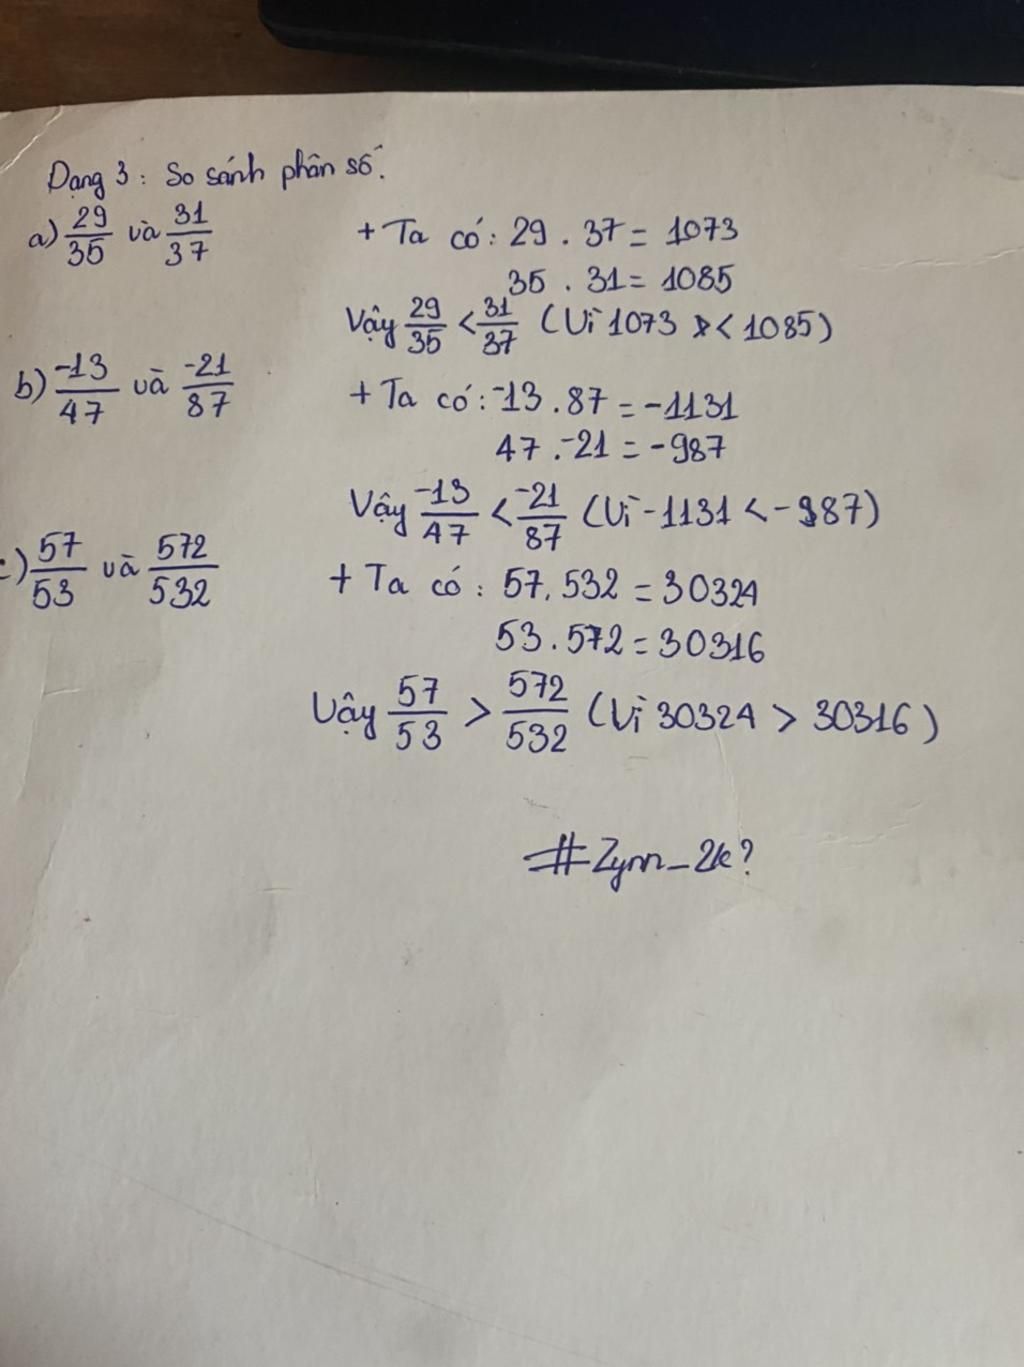 Dạng 3: So sánh phân số.
a) 29/35 và 31/37
+ Ta có: 29 . 37 = 1073
35 . 31 = 1085
Vậy 29/35 < 31/37 (Vì 1073 < 1085)
b) -13/47 và -21/87
+ Ta có: -13 . 87 = -1131
47 . -21 = -987
Vậy -13/47 < -21/87 (Vì -1131 < -987)
c) 57/53 và 572/532
+ Ta có: 57. 532 = 30324
53 . 572 = 30316
Vậy 57/53 > 572/532 (Vì 30324 > 30316)
#Zym_2k?